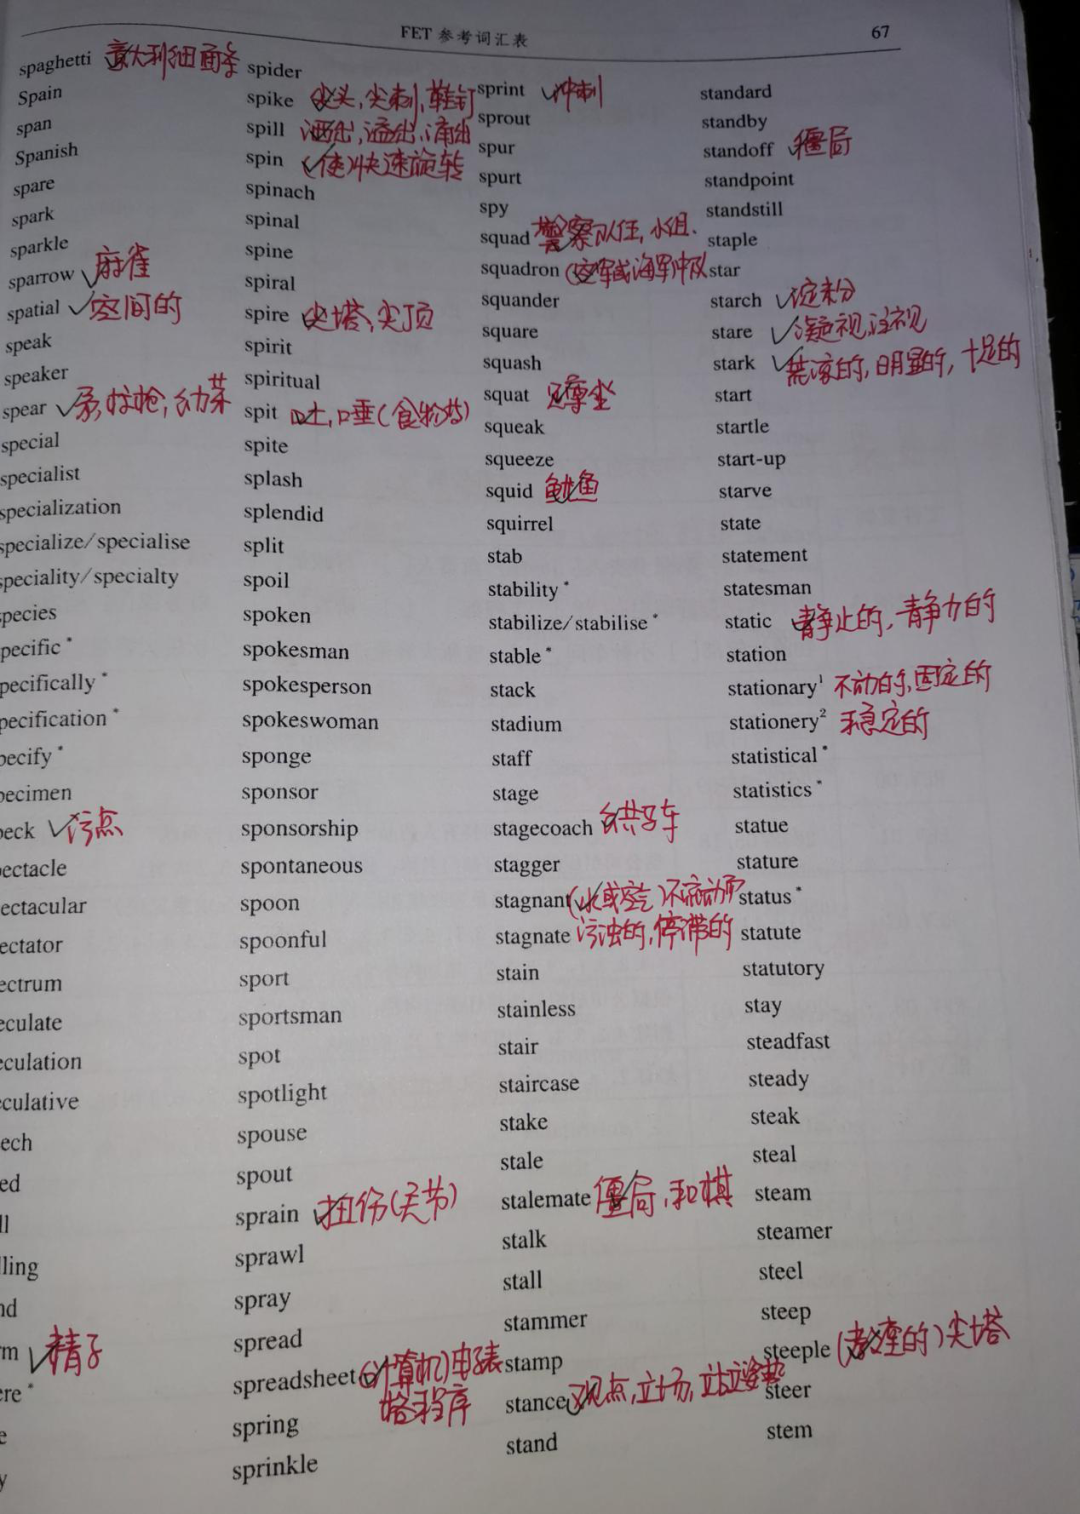 FET 参考词汇表 67
spaghetti 意大利细面条
Spain
span
Spanish
spare
spark
sparkle
sparrow 麻雀
spatial 空间的
speak
speaker
spear 矛,标枪,幼菜
special
specialist
specialization
specialize/specialise
speciality/specialty
species
pecific*
pecifically*
pecification*
pecify*
pecimen
peck 污点
pectacle
ectacular
ectator
ectrum
eculate
eculation
eculative
ech
ed
ll
lling
nd
rm 精子
ere*
e
y
spider
spike 尖头,尖刺,鞋钉
spill 洒出,溢出,涌出
spin (使)快速旋转
spinach
spinal
spine
spiral
spire 尖塔,尖顶
spirit
spiritual
spit 吐,唾(食物等)
spite
splash
splendid
split
spoil
spoken
spokesman
spokesperson
spokeswoman
sponge
sponsor
sponsorship
spontaneous
spoon
spoonful
sport
sportsman
spot
spotlight
spouse
spout
sprain 扭伤(关节)
sprawl
spray
spread
spreadsheet (计算机)电子表
格程序
spring
sprinkle
sprint 冲刺
sprout
spur
spurt
spy
squad 警察队伍,小组.
squadron (空军或海军)中队
squander
square
squash
squat 蹲坐
squeak
squeeze
squid 鱿鱼
squirrel
stab
stability*
stabilize/stabilise*
stable*
stack
stadium
staff
stage
stagecoach 公共马车
stagger
stagnant (水或空气)不流动而
stagnate 污浊的,停滞的
stain
stainless
stair
staircase
stake
stale
stalemate 僵局,和棋
stalk
stall
stammer
stamp
stance 观点,立场,站立姿势
stand
standard
standby
standoff 僵局
standpoint
standstill
staple
star
starch 淀粉
stare 凝视,注视
stark 荒凉的,明显的,十足的
start
startle
start-up
starve
state
statement
statesman
static 静止的,静力的
station
stationary¹ 不动的,固定的
stationery² 稳定的
statistical*
statistics*
statue
stature
status*
statute
statutory
stay
steadfast
steady
steak
steal
steam
steamer
steel
steep
steeple (教堂的)尖塔
steer
stem